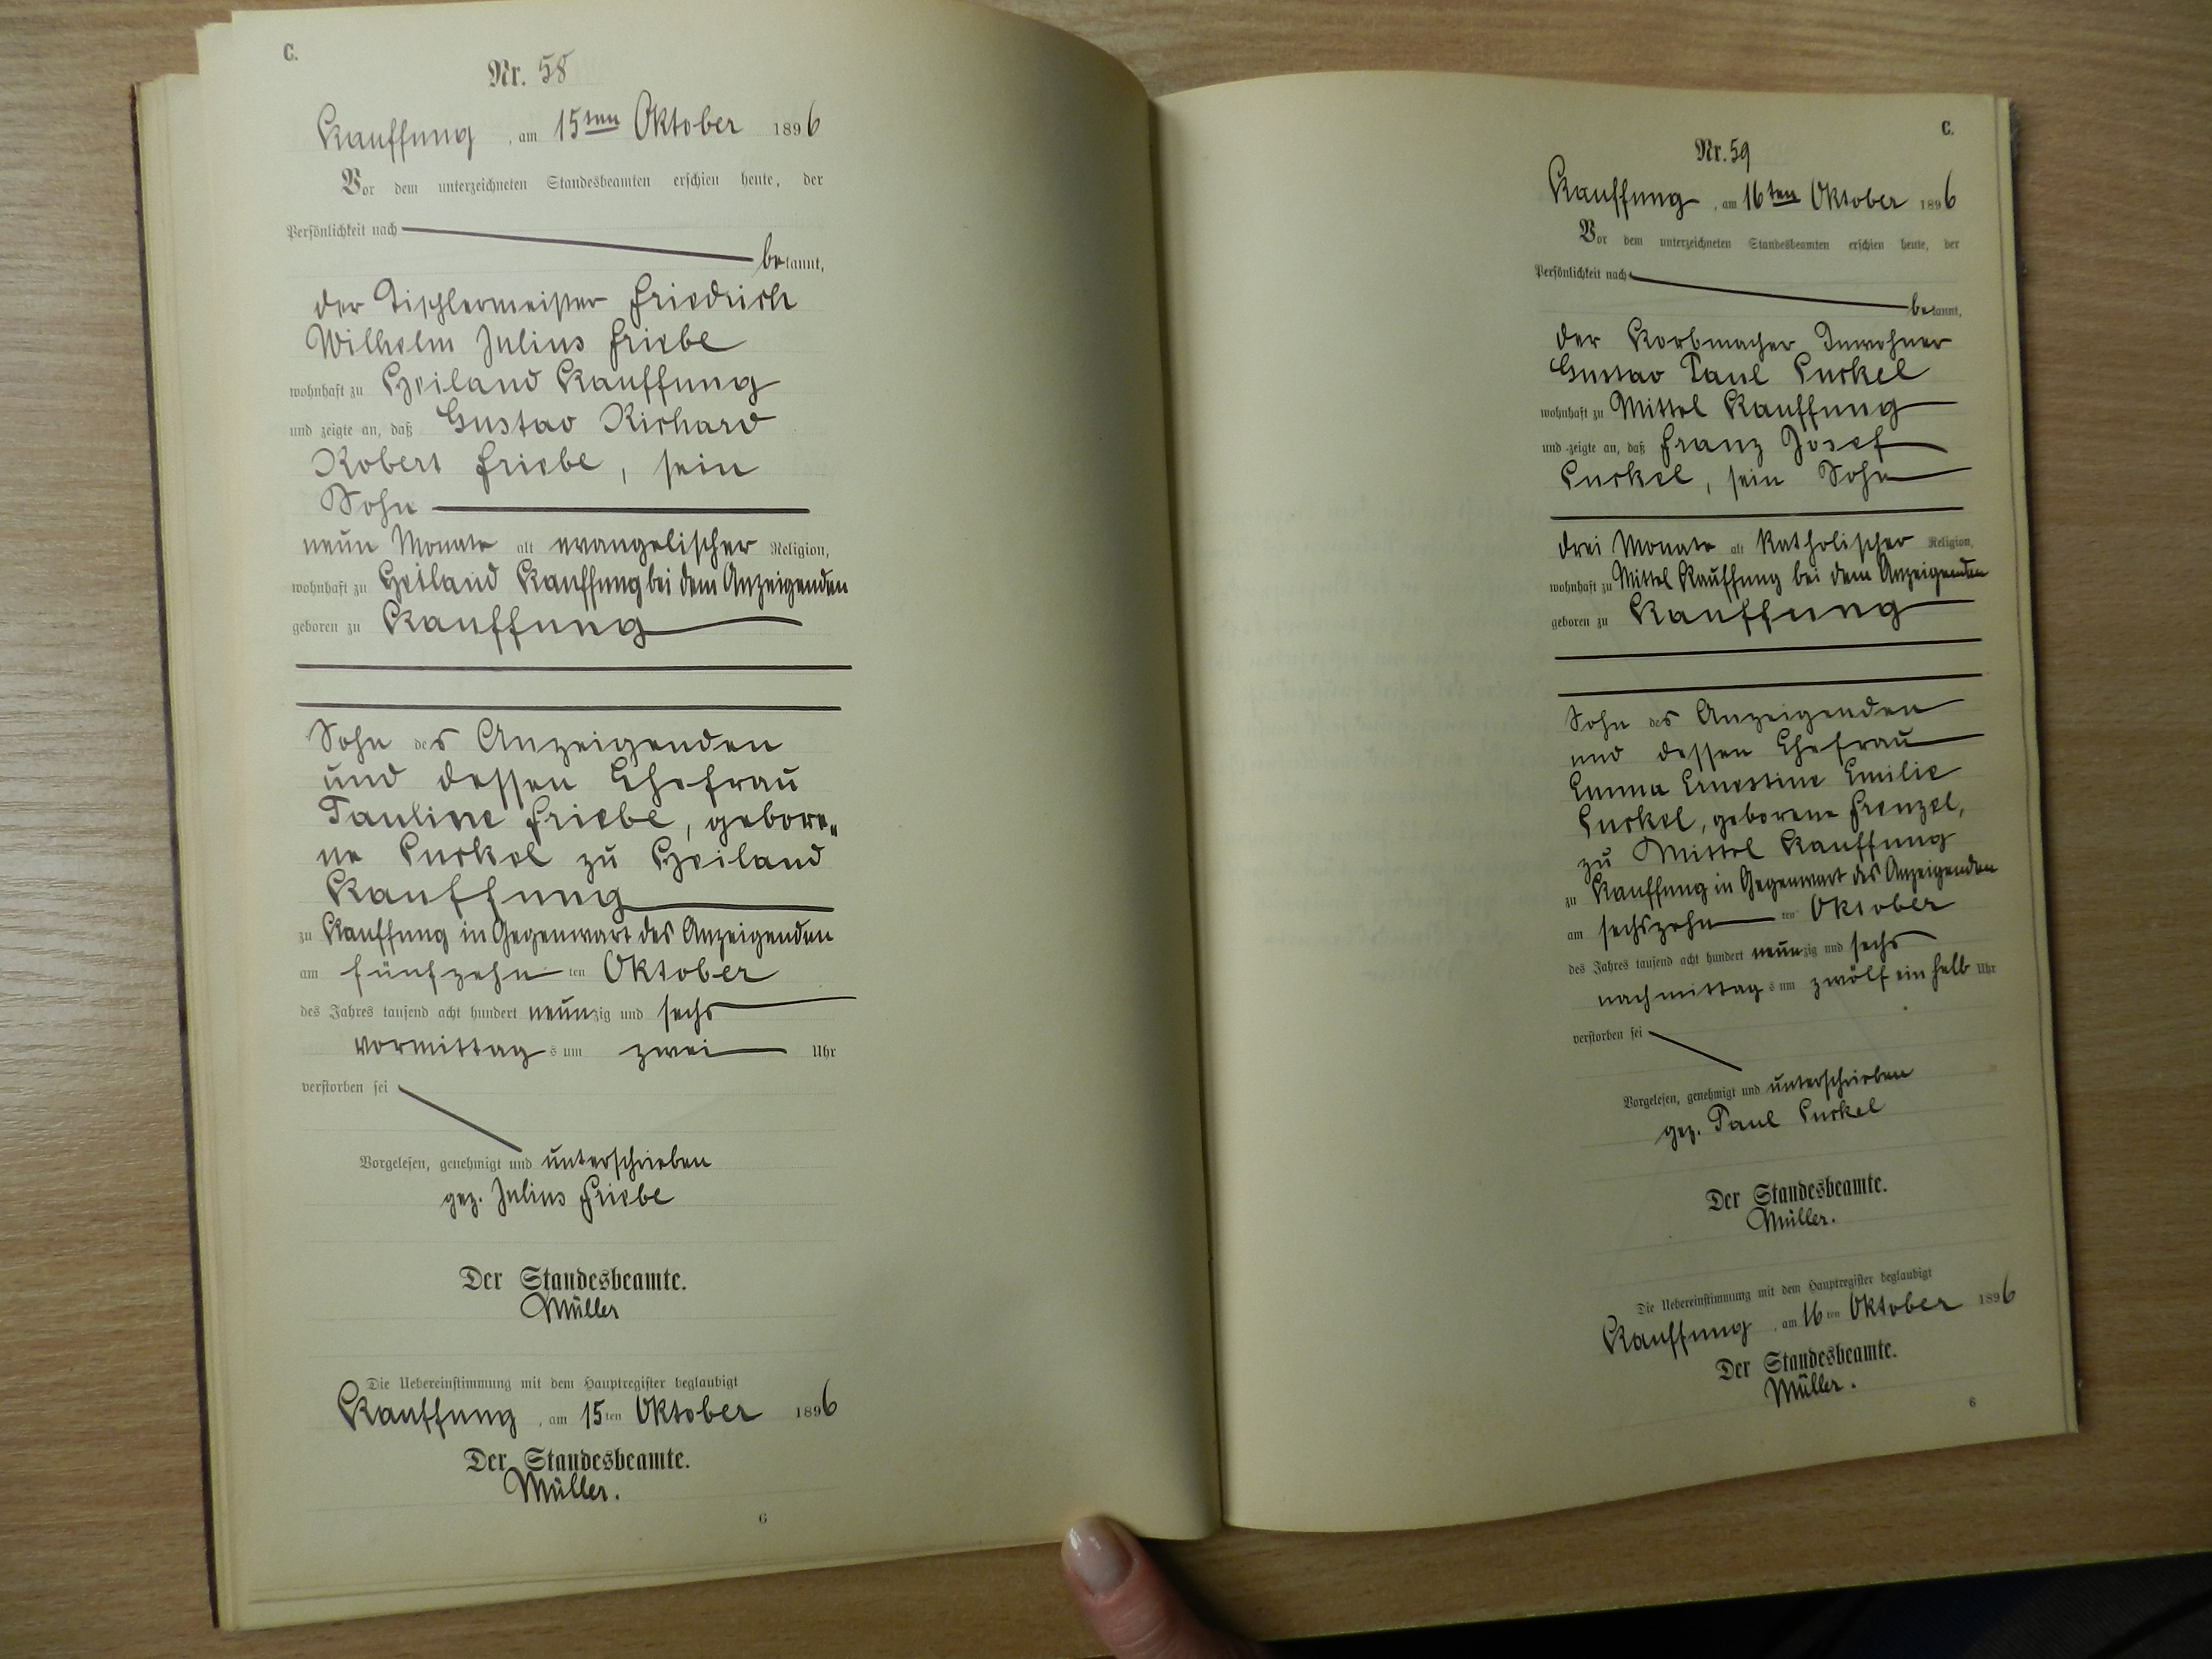 C.
Nr. 58
Kauffung, am 15ten Oktober 1896
Vor dem unterzeichneten Standesbeamten erschien heute, der
Persönlichkeit nach
bekannt,
der Tischlermeister Friedrich
Wilhelm Julius Friebe
wohnhaft zu Heiland Kauffung
und zeigte an, daß Gustav Richard
Robert Friebe, sein
Sohn
neun Monate alt evangelischer Religion,
wohnhaft zu Heiland Kauffung bei dem Anzeigenden
geboren zu Kauffung
Sohn des Anzeigenden
und dessen Ehefrau
Pauline Friebe, gebore„
ne Puschel zu Heiland
Kauffung
zu Kauffung in Gegenwart des Anzeigenden
am fünfzehnten Oktober
des Jahres tausend acht hundert neunzig und sechs
vormittags um zwei Uhr
verstorben sei
Vorgelesen, genehmigt und unterschrieben
gez. Julius Friebe
Der Standesbeamte.
Müller
Die Uebereinstimmung mit dem Hauptregister beglaubigt
Kauffung, am 15ten Oktober 1896
Der Standesbeamte.
Müller.
6
C.
Nr. 59
Kauffung, am 16ten Oktober 1896
Vor dem unterzeichneten Standesbeamten erschien heute, der
Persönlichkeit nach
bekannt,
der Korbmacher Inwohner
Gustav Paul Puschel
wohnhaft zu Mittel Kauffung
und zeigte an, daß Franz Josef
Puschel, sein Sohn
drei Monate alt katholischer Religion,
wohnhaft zu Mittel Kauffung bei dem Anzeigenden
geboren zu Kauffung
Sohn des Anzeigenden
und dessen Ehefrau
Emma Ernestine Emilie
Puschel, geborene Frenzel,
zu Mittel Kauffung
zu Kauffung in Gegenwart des Anzeigenden
am sechszehnten Oktober
des Jahres tausend acht hundert neunzig und sechs
nachmittags um zwölf ein halb Uhr
verstorben sei
Vorgelesen, genehmigt und unterschrieben
gez. Paul Puschel
Der Standesbeamte.
Müller.
Die Uebereinstimmung mit dem Hauptregister beglaubigt
Kauffung, am 16ten Oktober 1896
Der Standesbeamte.
Müller.
6